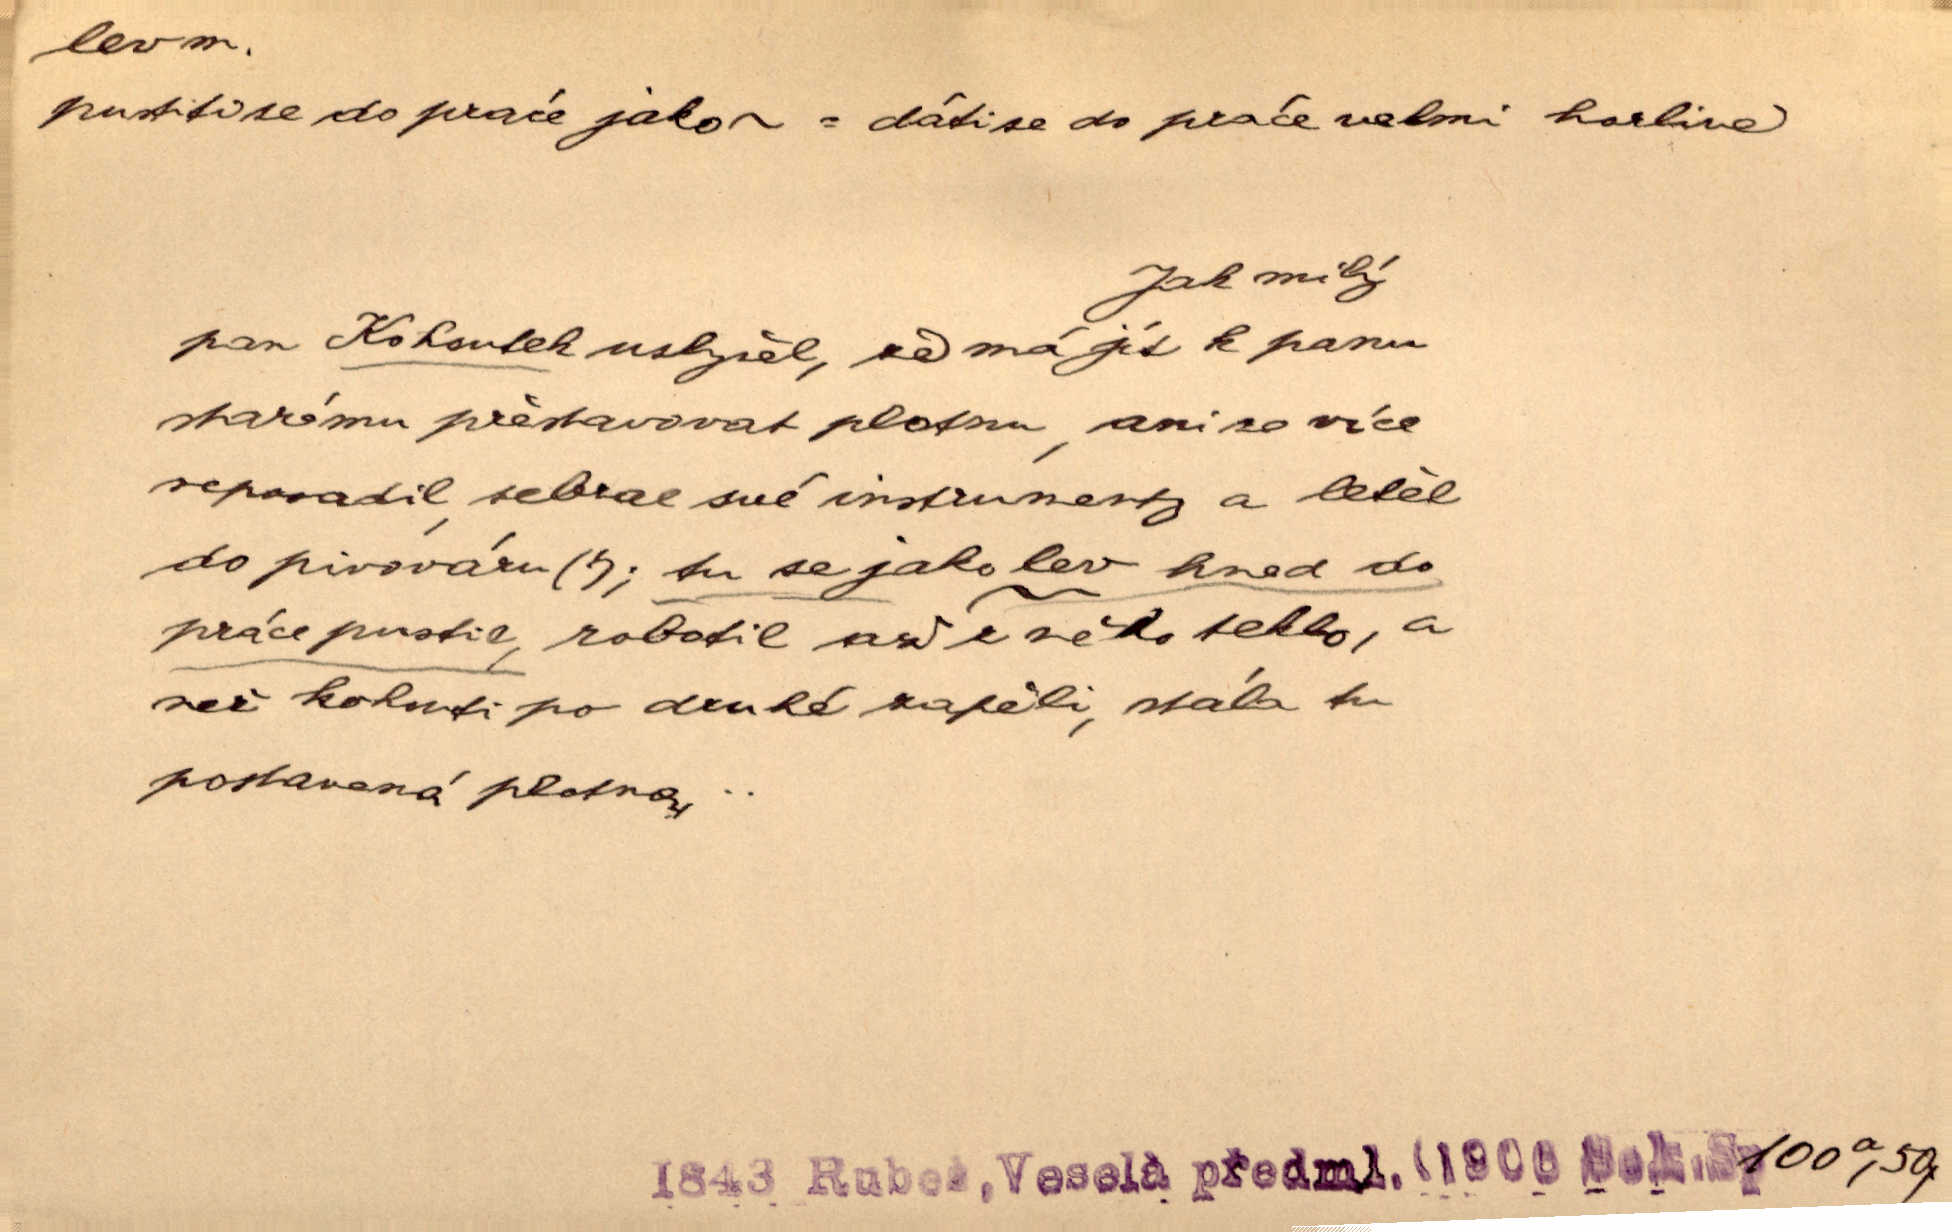 lev m.
pustiti se do práce jako ~ = dáti se do práce velmi horlivě
Jak milý
pan Kohoutek uslyšel, že má jít k panu
starému přestavovat plotnu, ani se více
neposadil, sebral své instrumenty a letěl
do pivováru (!); tu se jako lev hned do
práce pustil, robotil až z něho teklo, a
než kohouti po druhé zapěli, stála tu
postavená plotna, ..
1843 Rubeš, Veselá předml. (1906 100a, 50,